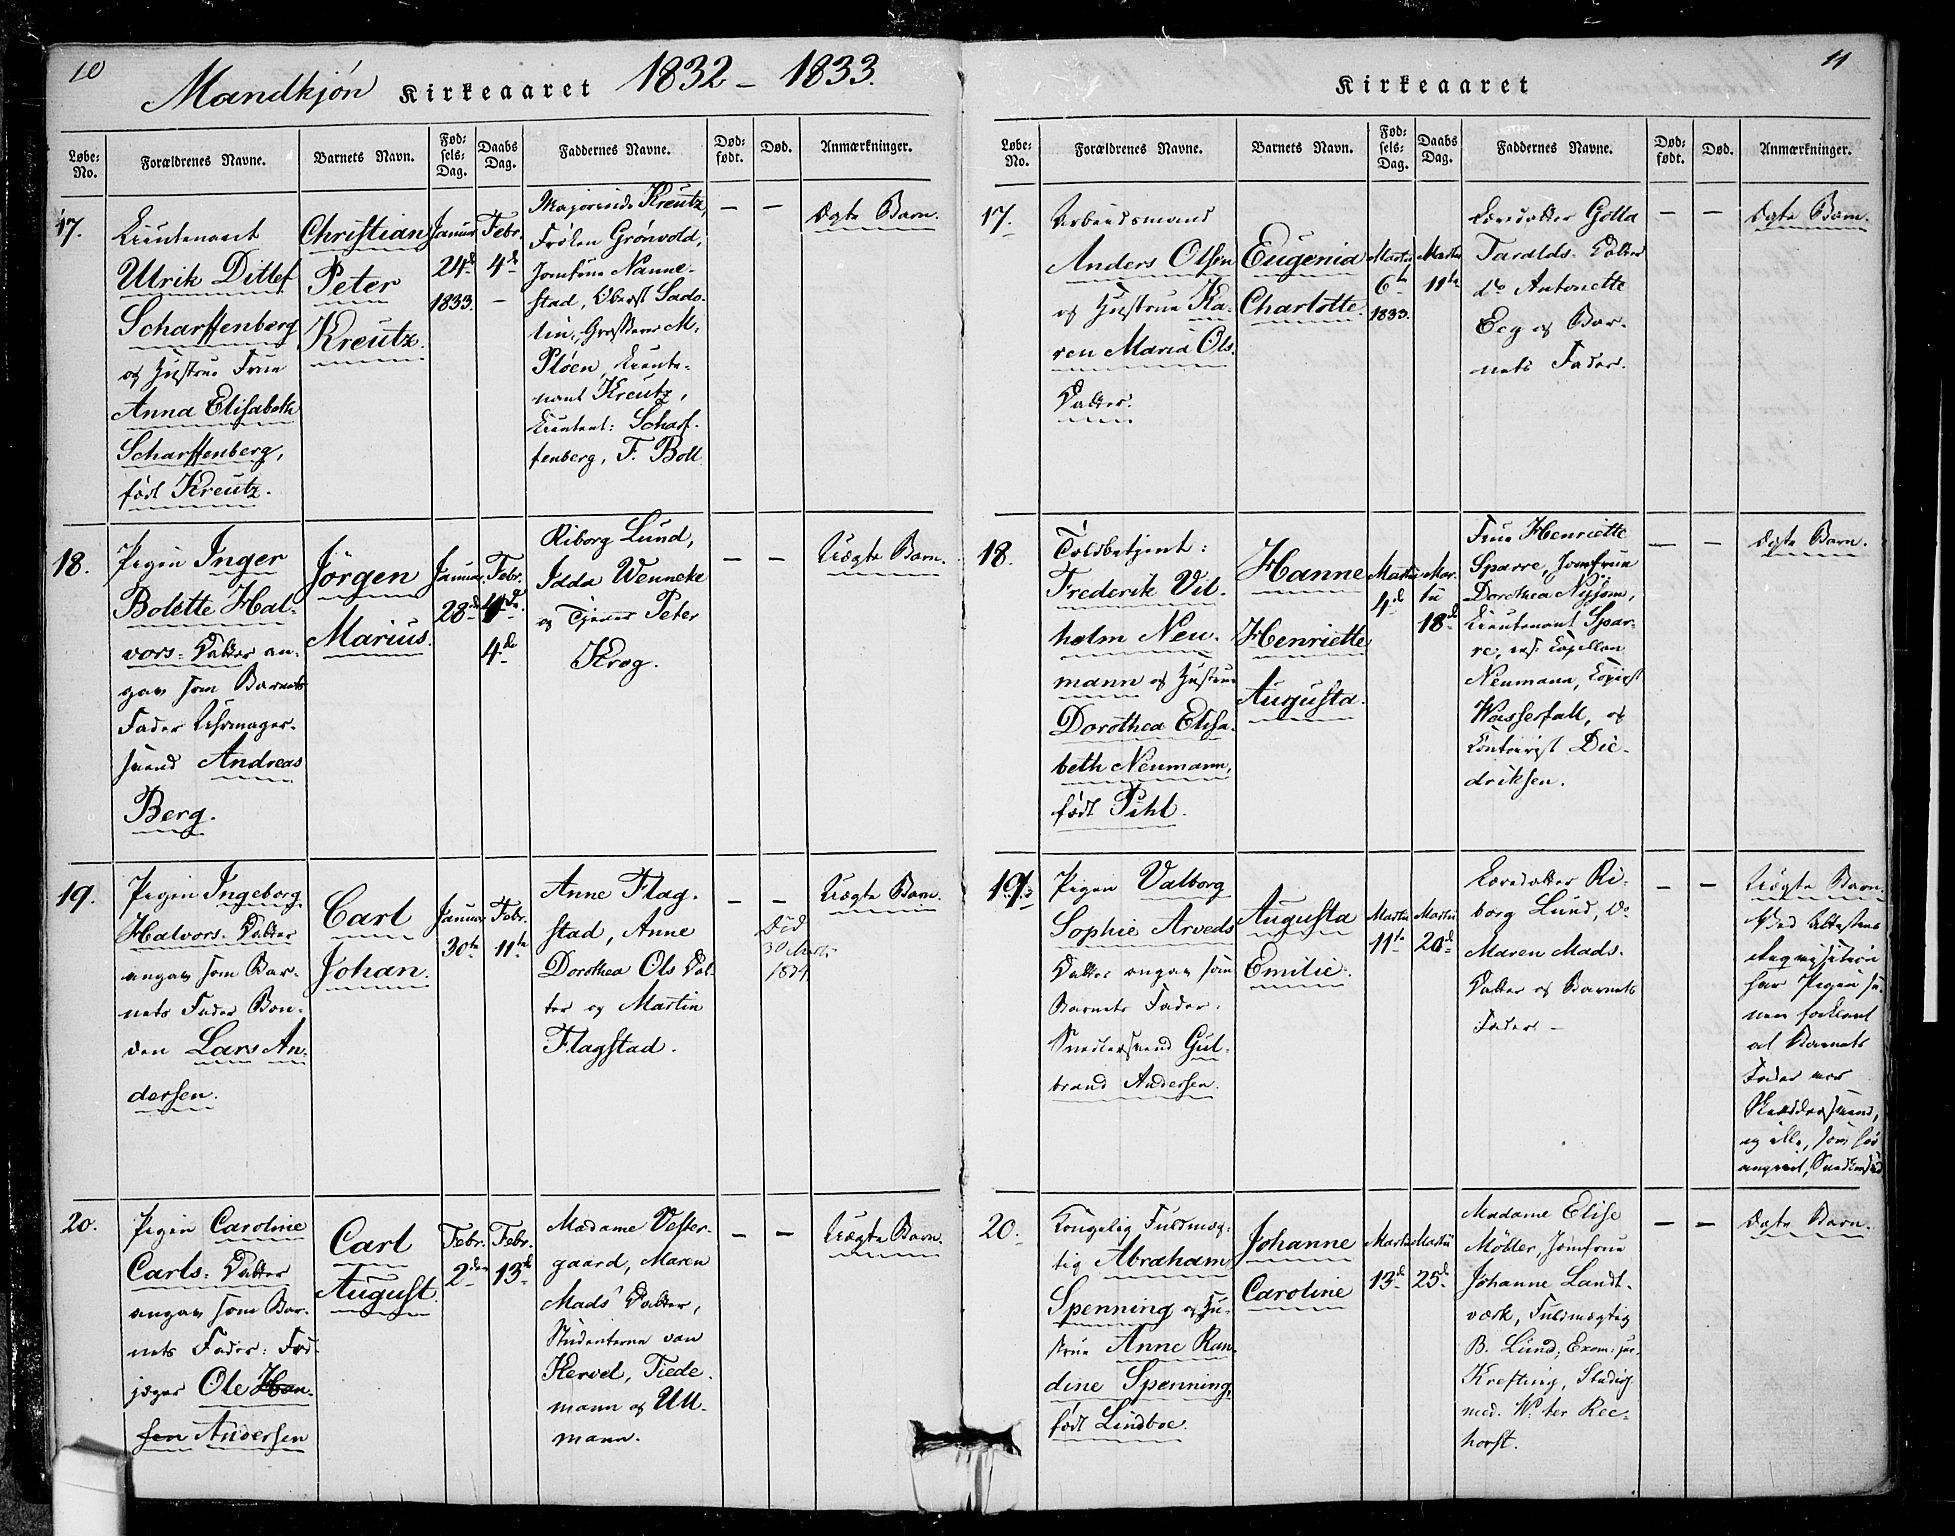 10
Mandkjøn Kirkeaaret 1832 – 1833.
Løbe-No.
Forældrenes Navne.
Barnets Navn.
Fødsels-Dag.
Daabs Dag.
Faddernes Navne.
Dødfødt.
Død.
Anmærkninger.
17.
Lieutenant
Ulrik Ditlef
Scharffenberg
og Hustrue Frue
Anna Elisabeth
Scharffenberg,
født Kreutz.
Christian
Peter
Kreutz.
Januar
24d
1833.
Febr.
4d
–
Majorinde Kreutz,
Frøken Grønvold,
Jomfrue Nanne-
stad, Oberst Sado-
lin, Grosserer M,
Pløen, Lieute-
nant Kreutz,
Lieutent: Scharf-
fenberg, F. Boll
– –
Ægte Barn.
18.
Pigen Inger
Bolette Hal-
vors-Datter an-
gav som Barnets
Fader Uhrmager-
svend Andreas
Berg.
Jørgen
Marius.
Januar.
28de
Febr.
4de
4de
Riborg Lund,
Idda Wenneke
og Tjener Peter
Krog.
– –
Uægte Barn.
19.
Pigen Ingeborg
Halvors-Datter
angav som Bar-
nets Fader Bon-
den Lars An-
dersen.
Carl
Johan.
Januar
30te
Febr.
11te
Anne Flag-
stad, Anne
Dorothea Ols Dat-
ter og Martin
Flagstad.
– –
Død
30
1834
Uægte Barn.
20.
Pigen Caroline
Carls-Datter
angav som Bar-
nets Fader: Fod-
jæger Ole Han-
sen Andersen
Carl
August.
Febr.
2den
Febr.
13de
Madame Vester-
gaard, Maren
Mads' Datter,
Studenterne van
Kervel, Tiede-
mann og Ull-
mann.
– –
Uægte Barn.
11
Kirkeaaret
Løbe-No.
Forældrenes Navne.
Barnets Navn.
Fødsels-Dag.
Daabs Dag.
Faddernes Navne.
Dødfødt.
Død.
Anmærkninger.
17.
Arbeidsmand
Anders Olsen
og Hustrue Ka-
ren Maria Ols-
Datter.
Eugenia
Charlotte.
Martii
6te
1833.
Martii
11te
Læredatter Golla
Taralds-Datter
do Antonette
Ecg og Bar-
nets Fader.
– –
Ægte Barn.
18.
Toldbetjent:
Frederik Vil-
helm Neu-
mann og Hustrue
Dorothea Elisa-
beth Neumann,
født Pihl.
Hanne
Henriette
Augusta.
Martii
4de
Mar-
tii
18de
Frue Henriette
Sparre, Jomfrue
Dorothea
Lieutenant Spar-
re, res: Capellan
Neumann, Copiist
Wasserfall, og
Controrist Die-
driksen.
– –
Ægte Barn.
19.
Pigen Valborg
Sophie Arveds
Datter angav som
Barnets Fader.
Snedkersvend Gul-
brand Andersen.
Augusta
Emilie.
Martii
11te
Martii
20de
Læredatter Ri-
borg Lund, Do
Maren Mads-
Datter og Barnets
Fader –
– –
Uægte Barn.
Ved Attestens
Reqvisition
har Pigen se-
nere forklaret
at Barnets
Fader var
Skræddersvend,
og ikke, som her
angivet, Snedkersvend
20.
Kongelig Fuldmæg-
tig Abraham
Spenning og Hu-
strue Anne Ran-
dine Spenning,
født Lindboe.
Johanne
Caroline
Martii
13de
Martii
25de
Madame Elise
Møller, Jomfrue
Johanne Landt-
værk, Fuldmægtig
B. Lund, Exam: jur.
Krefting, Studios.
med. W. ter Rec-
horst.
– –
Ægte Barn.